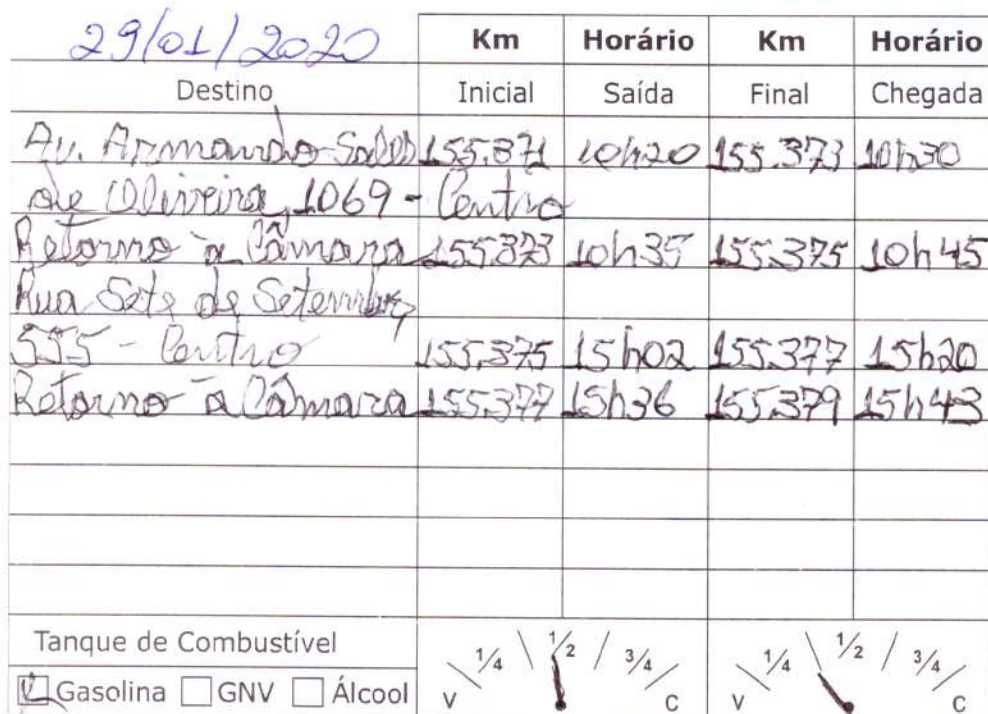 29/01/2020 Km Horário Km Horário
Destino Inicial Saída Final Chegada
Av. Armando Salles 155.371 10h20 155.373 10h30
de Oliveira, 1069 - Centro
Retorno à Câmara 155.373 10h35 155.375 10h45
Rua Sete de Setembro,
555 - Centro 155.375 15h02 155.377 15h20
Retorno à Câmara 155.377 15h36 155.379 15h43
Tanque de Combustível
V 1/4 1/2 3/4 C V 1/4 1/2 3/4 C
Gasolina GNV Álcool